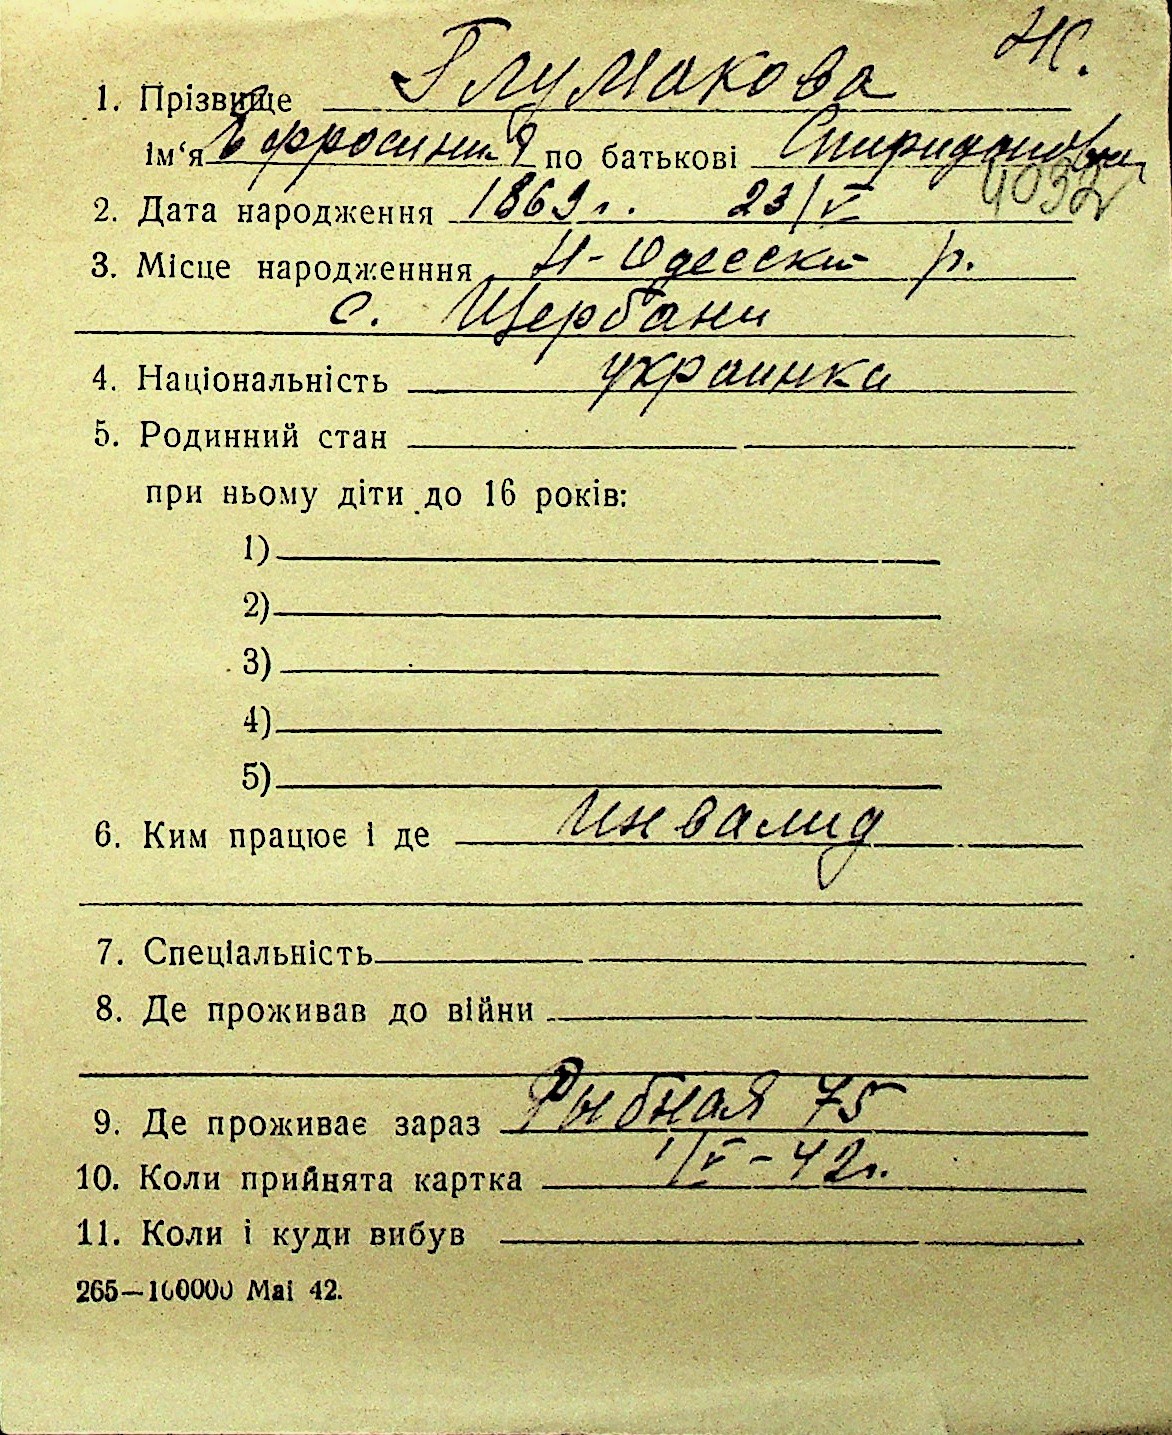 Ж.
1. Прізвище Глумакова
Ім'я Ефросиния по батькові Спиридоновна
4032
2. Дата народження 1869 г. 23/V
3. Місце народженння Н-Одесский р.
с. Щербани
4. Національність украинка
5. Родинний стан
при ньому діти до 16 років:
1)
2)
3)
4)
5)
6. Ким працює і де Инвалид
7. Спеціальність
8. Де проживав до війни
9. Де проживає зараз Рыбная 75
10. Коли прийнята картка 1/V-42 г.
11. Коли і куди вибув
265—100000 Mai 42.